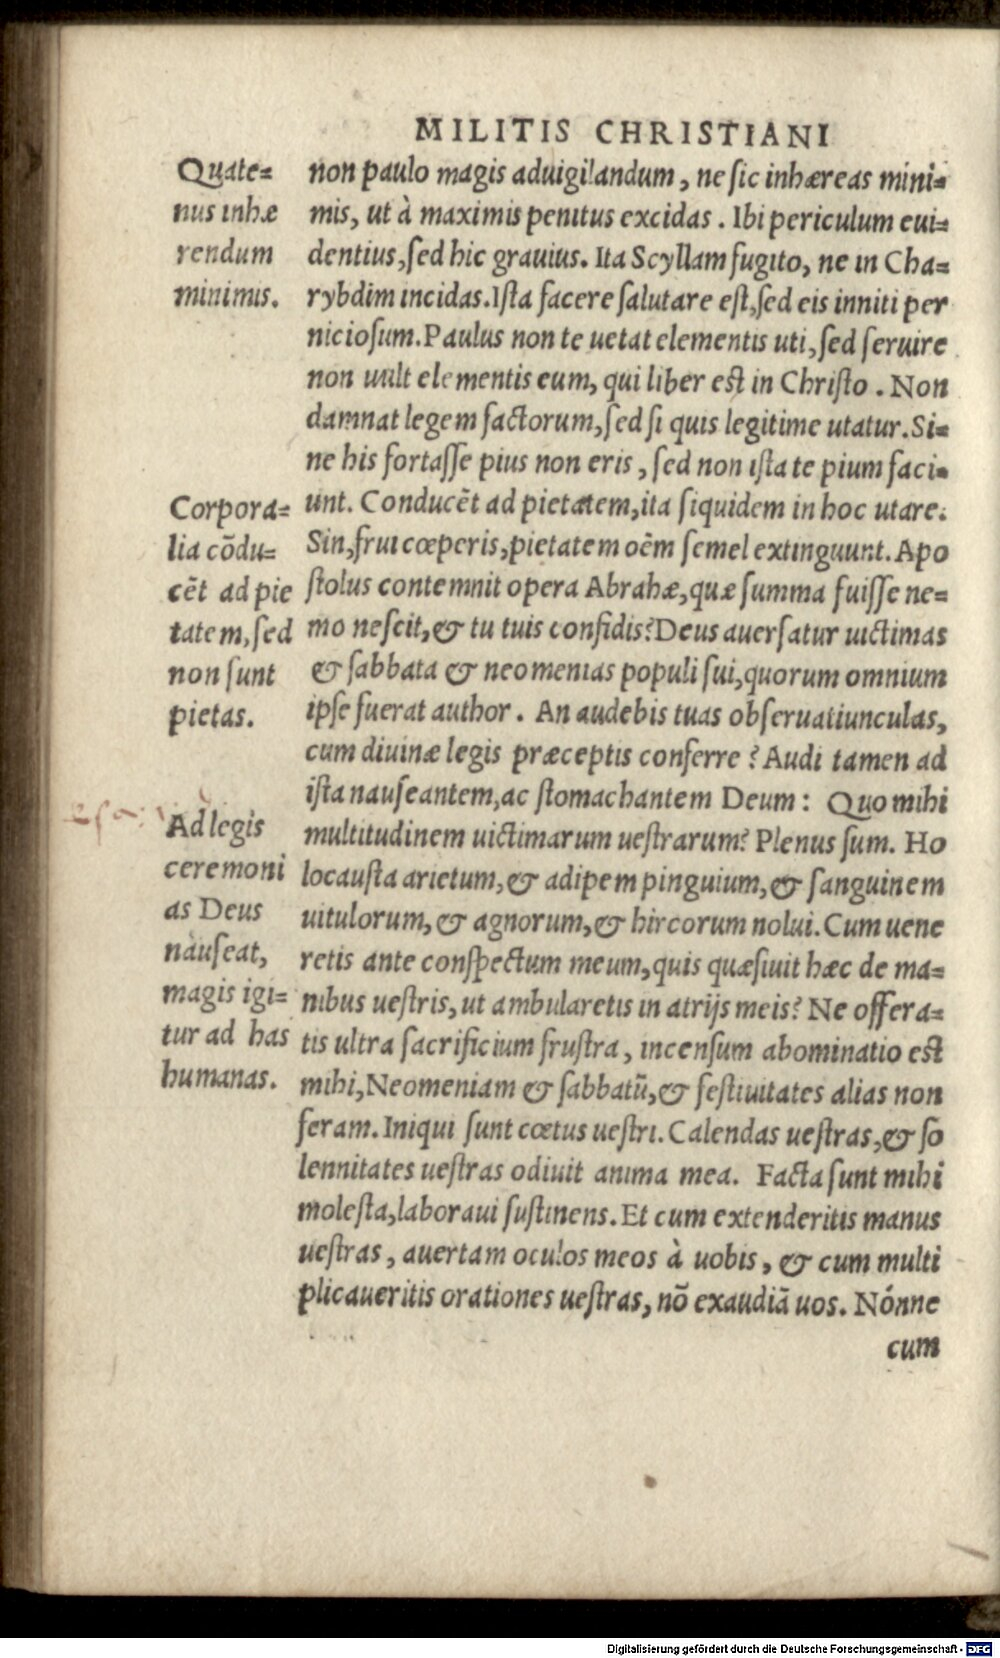 MILITIS CHRISTIANI
Quate=
nus inhæ
rendum
minimis.
non paulo magis aduigilandum, ne sic inhæreas mini=
mis, ut à maximis penitus excidas. Ibi periculum eui=
dentius, sed hic grauius. Ita Scyllam fugito, ne in Cha=
rybdim incidas. Ista facere salutare est, sed eis inniti per
niciosum. Paulus non te uetat elementis uti, sed seruire
non uult elementis eum, qui liber est in Christo. Non
damnat legem factorum, sed si quis legitime utatur. Si=
ne his fortasse pius non eris, sed non ista te pium faci=
Corpora=
lia cōdu=
cēt ad pie
tatem, sed
non sunt
pietas.
unt. Conducēt ad pietatem, ita siquidem in hoc utare.
Sin, frui cœperis, pietatem oēm semel extinguunt. Apo
stolus contemnit opera Abrahæ, quæ summa fuisse ne=
mo nescit, & tu tuis confidis? Deus auersatur uictimas
& sabbata & neomenias populi sui, quorum omnium
ipse fuerat author. An audebis tuas obseruatiunculas,
cum diuinæ legis præceptis conferre? Audi tamen ad
ista nauseantem, ac stomachantem Deum: Quo mihi
Esa:
Ad legis
ceremoni
as Deus
nauseat,
magis igi=
tur ad has
humanas.
multitudinem uictimarum uestrarum? Plenus sum. Ho
locausta arietum, & adipem pinguium, & sanguinem
uitulorum, & agnorum, & hircorum nolui. Cum uene
retis ante conspectum meum, quis quæsiuit hæc de ma=
nibus uestris, ut ambularetis in atrijs meis? Ne offera=
tis ultra sacrificium frustra, incensum abominatio est
mihi, Neomeniam & sabbatū, & festiuitates alias non
feram. Iniqui sunt cœtus uestri. Calendas uestras, & so
lennitates uestras odiuit anima mea. Facta sunt mihi
molesta, laboraui sustinens. Et cum extenderitis manus
uestras, auertam oculos meos à uobis, & cum multi
plicaueritis orationes uestras, nō exaudiā uos. Nónne
cum
Digitalisierung gefördert durch die Deutsche Forschungsgemeinschaft - DFG